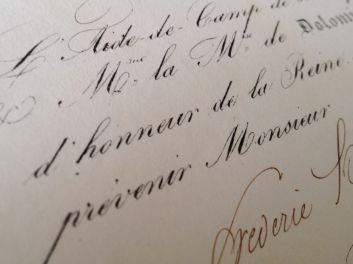 L'Aide-de-Camp de
& Mme la Mise de Dolomi
d'honneur de la Reine.
prévenir Monsieur
Frederic